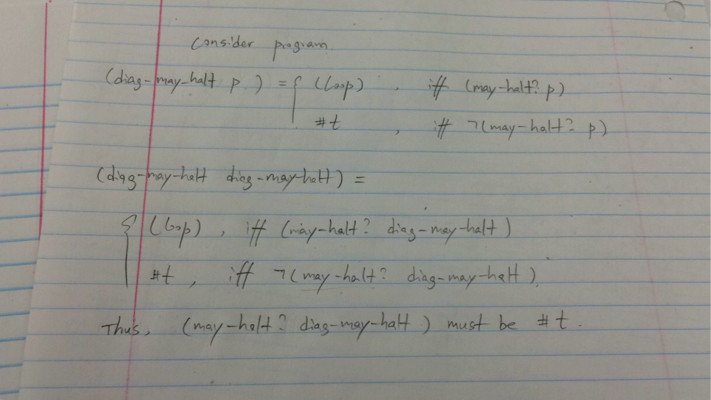 Consider program
(diag-may-halt p ) = { (loop) , iff (may-halt? p)
#t , iff ¬(may-halt? p)
(diag-may-halt diag-may-halt) =
{ (loop) , iff (may-halt? diag-may-halt)
#t , iff ¬(may-halt? diag-may-halt)
Thus, (may-halt? diag-may-halt ) must be #t .